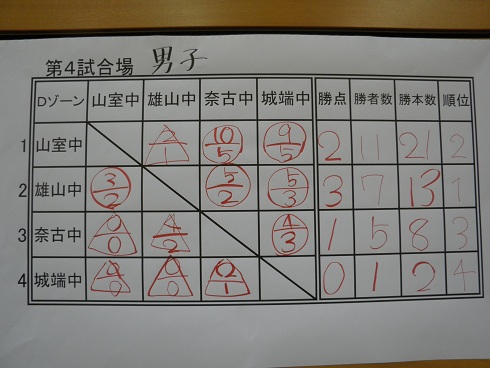 第4試合場 男子
Dゾーン 山室中 雄山中 奈古中 城端中 勝点 勝者数 勝本数 順位
1 山室中 2/1 10/5 9/5 2 11 21 2
2 雄山中 3/2 5/2 5/3 3 7 13 1
3 奈古中 0/0 4/2 4/3 1 5 8 3
4 城端中 0/0 2/1 0 1 2 4